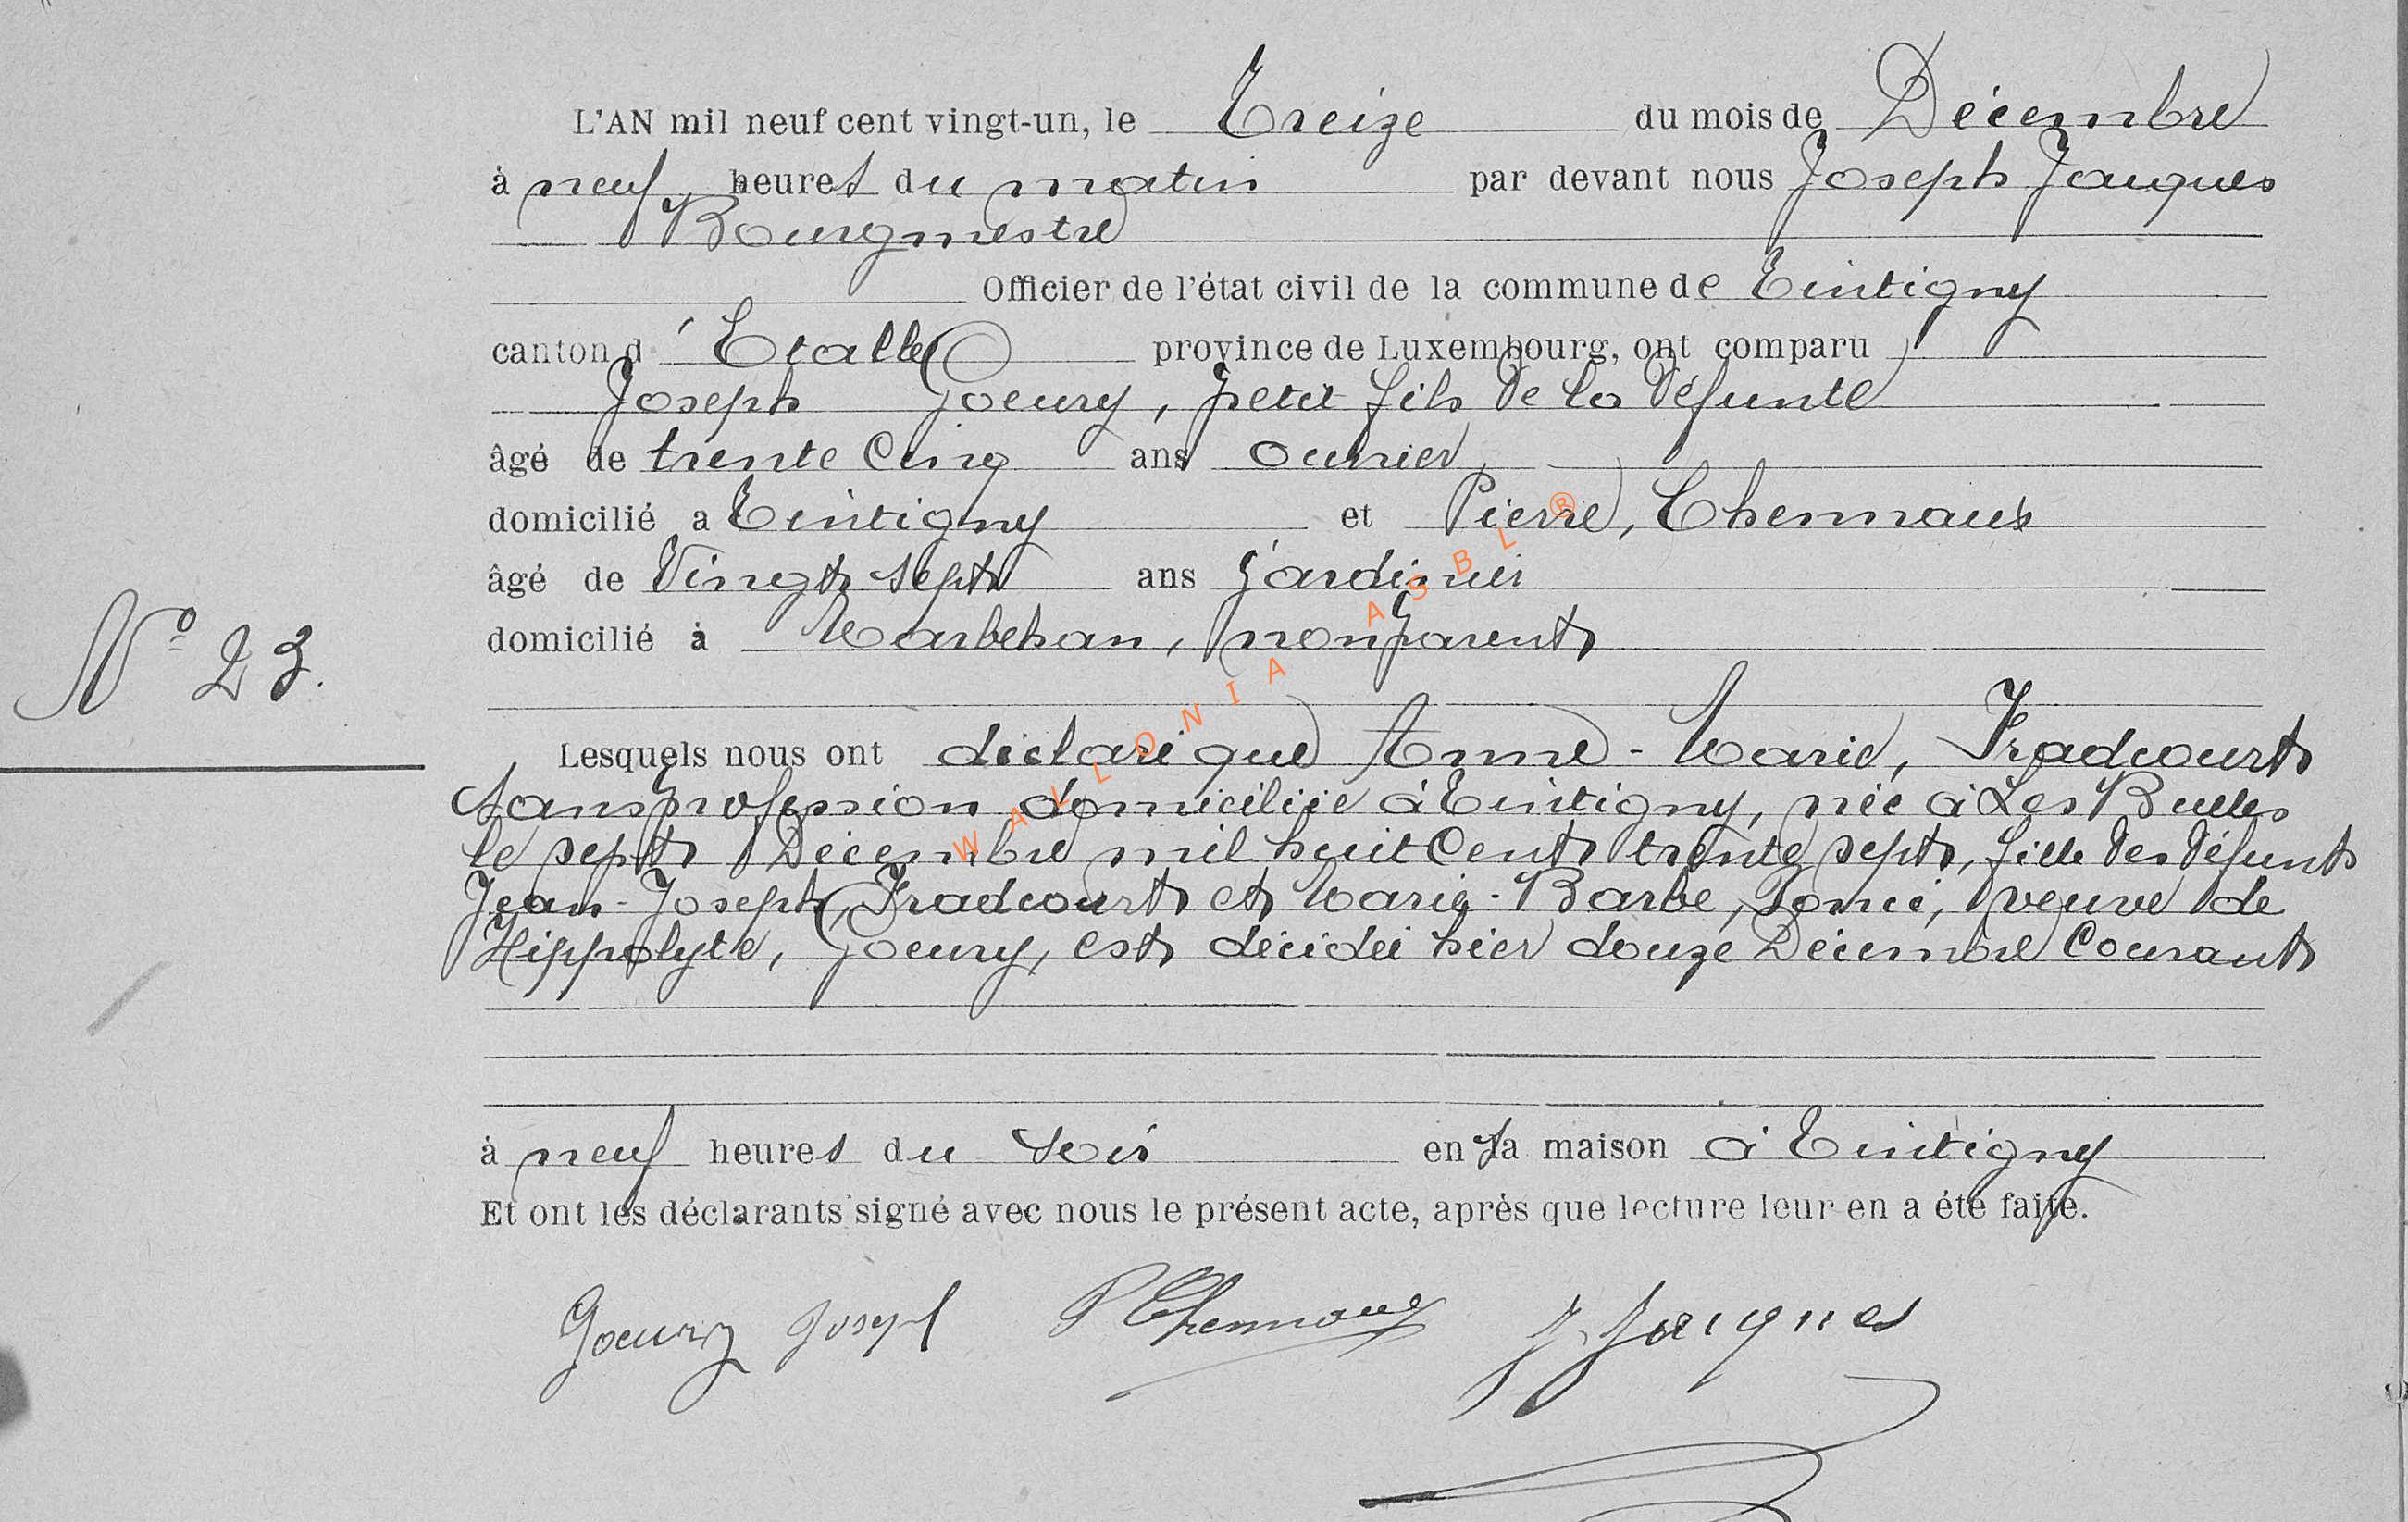 L'AN mil neuf cent vingt-un, le Treize du mois de Décembre
à neuf heures du matin par devant nous Joseph Jacques
Bourgmestre
Officier de l'état civil de la commune de Tintigny
canton d'Etalle province de Luxembourg, ont comparu
Joseph Goeury, petit fils de la défunte
âgé de trente cinq ans ouvrier
domicilié a Tintigny et Pierre, Chenmaux
âgé de Vingt sept ans jardinier
domicilié à Marbehan, non parent
N° 23.
Lesquels nous ont déclaré que Anne-Marie, Fradcourt
sans profession domiciliée à Tintigny, née à Les Bulles
le sept Décembre mil huit cent trente sept, fille des défunts
Jean-Joseph, Fradcourt et Marie-Barbe, veuve de
Hippolyte, Goeury, est décédée hier douze Décembre Courant
à neuf heures du soir en sa maison à Tintigny
Et ont les déclarants signé avec nous le présent acte, après que lecture leur en a été faite.
Goeury Joseph P Chenmaux J. Jacques
WALLONIA ASBL ®